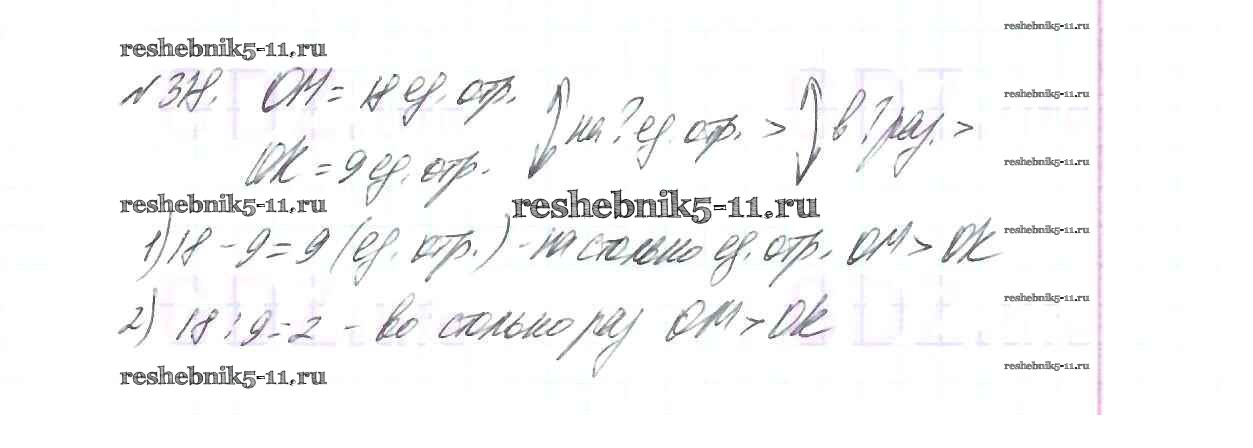 reshebnik5-11.ru
reshebnik5-11.ru
№ 378. ОМ = 18 ед. отр.
на ? ед. отр. > в ? раз. >
reshebnik5-11.ru
ОК = 9 ед. отр.
reshebnik5-11.ru
reshebnik5-11.ru
reshebnik5-11.ru
1) 18 - 9 = 9 (ед. отр.) - на столько ед. отр. ОМ > ОК
reshebnik5-11.ru
reshebnik5-11.ru
2) 18 : 9 = 2 - во столько раз ОМ > ОК
reshebnik5-11.ru
reshebnik5-11.ru